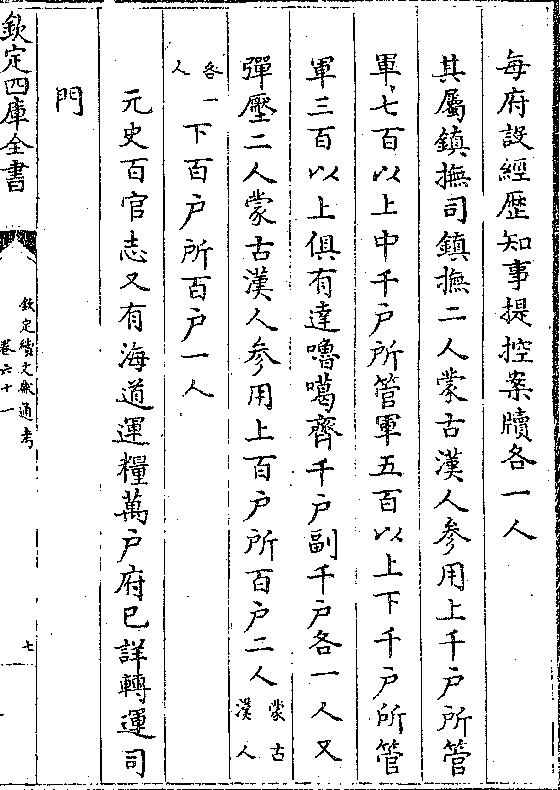 每府設經歴知事提控案牘各一人
其屬鎮撫司鎮撫二人蒙古漢人参用上千户所管
軍七百以上中千户所管軍五百以上下千户所管
軍三百以上俱有達嚕噶齊千户副千户各一人又
彈壓二人蒙古漢人参用上百户所百户二人蒙古漢人
各一人下百户所百户一人
元史百官志又有海道運糧萬户府已詳轉運司
門
欽定四庫全書
欽定續文獻通考
卷六十一
七